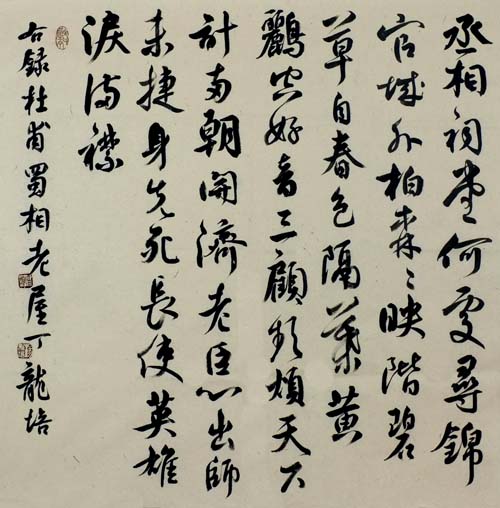 丞相祠堂何處尋錦
官城外柏森〻映階碧
草自春色隔葉黃
鸝空好音三顧頻煩天下
計兩朝開濟老臣心出師
未捷身先死長使英雄
淚滿襟
右錄杜甫蜀相老屋丁龍培